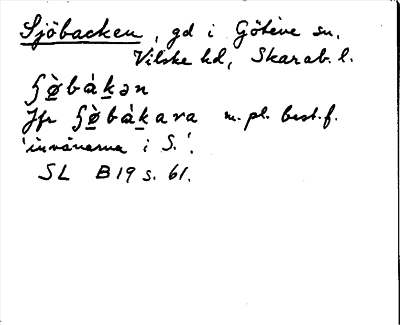 Sjöbacken, gd i Göteve sn,
Vilske hd, Skarab. l.
ʃø̀bàkən
Jfr ʃø̀bàkara m. pl. best. f.
'invånarna i S.'.
SL B19 s. 61.